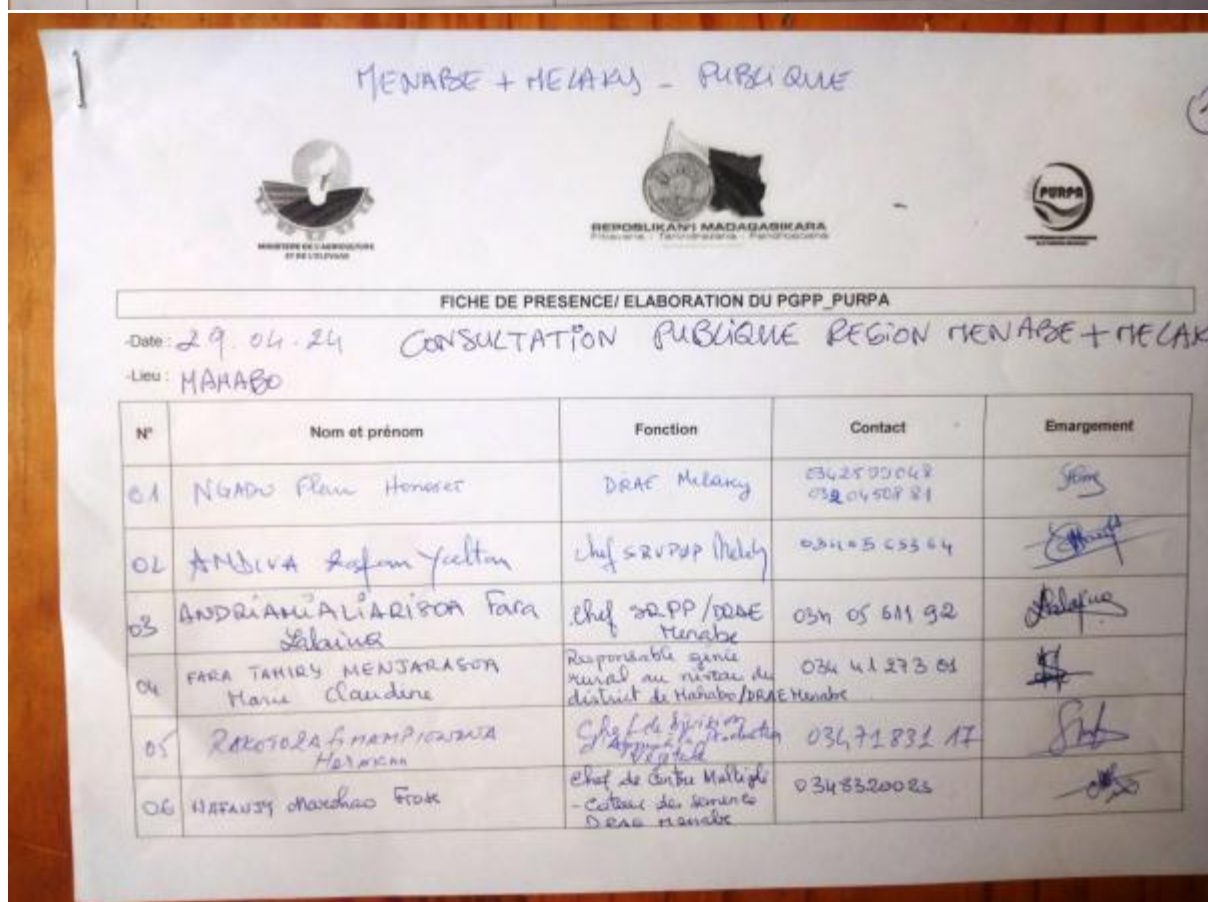 MENABE + MELAKY - PUBLIQUE
MINISTERE DE L'AGRICULTURE
ET DE L'ELEVAGE
REPOBLIKAN'I MADAGASIKARA
Fitiavana - Tanindrazana - Fandrosoana
PURPA
FICHE DE PRESENCE/ ELABORATION DU PGPP_PURPA
-Date : 29.04.24 CONSULTATION PUBLIQUE REGION MENABE + MELAK
-Lieu : MAHABO
N° Nom et prénom Fonction Contact Emargement
01 NGADO Honoret DRAE Melaky
032 04508 81
02 ANDIVA Chef
03 ANDRIAMIALIARISOA Fara Lalaina Chef SRPP/DRAE Menabe 034 05 611 92 Lalaina
04 FARA TAHIRY MENJARASOA Marie Claudine Responsable génie rural au niveau du district de Mahabo/DRAE Menabe 034 41 273 01
05 Hermann Chef de division d'Appui à la Production Végétale 034 71 831 17
06 Chef de Centre Multipli-cateur des semences DRAE Menabe 0348320023